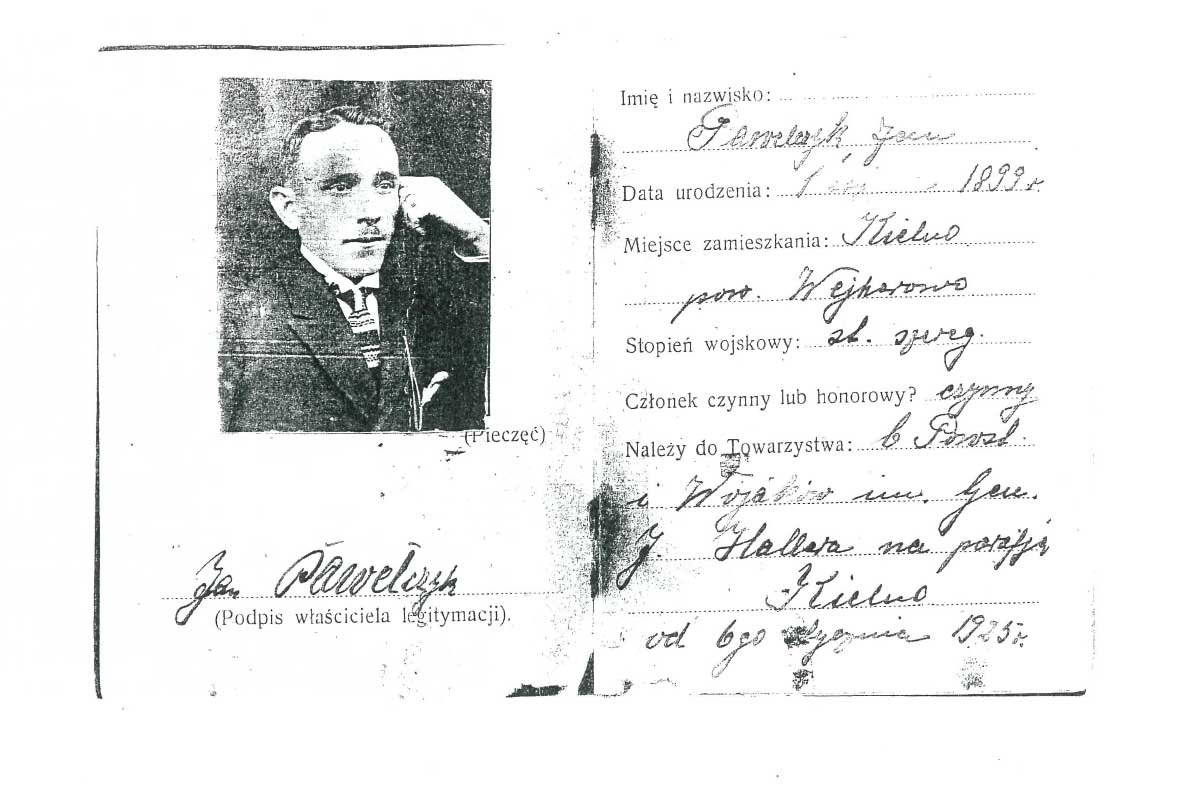 (Pieczęć)
Jan Pawełczyk
(Podpis właściciela legitymacji).
Imię i nazwisko:
Pawelczyk, Jan
Data urodzenia: 1 1899 r.
Miejsce zamieszkania: Kielno
pow. Wejherowo
Stopień wojskowy: st. szereg.
Członek czynny lub honorowy? czynny
Należy do Towarzystwa: b. Powst.
i Wojaków im. Gen.
J. Hallera na parafją
Kielno
od 6go stycznia 1925 r.